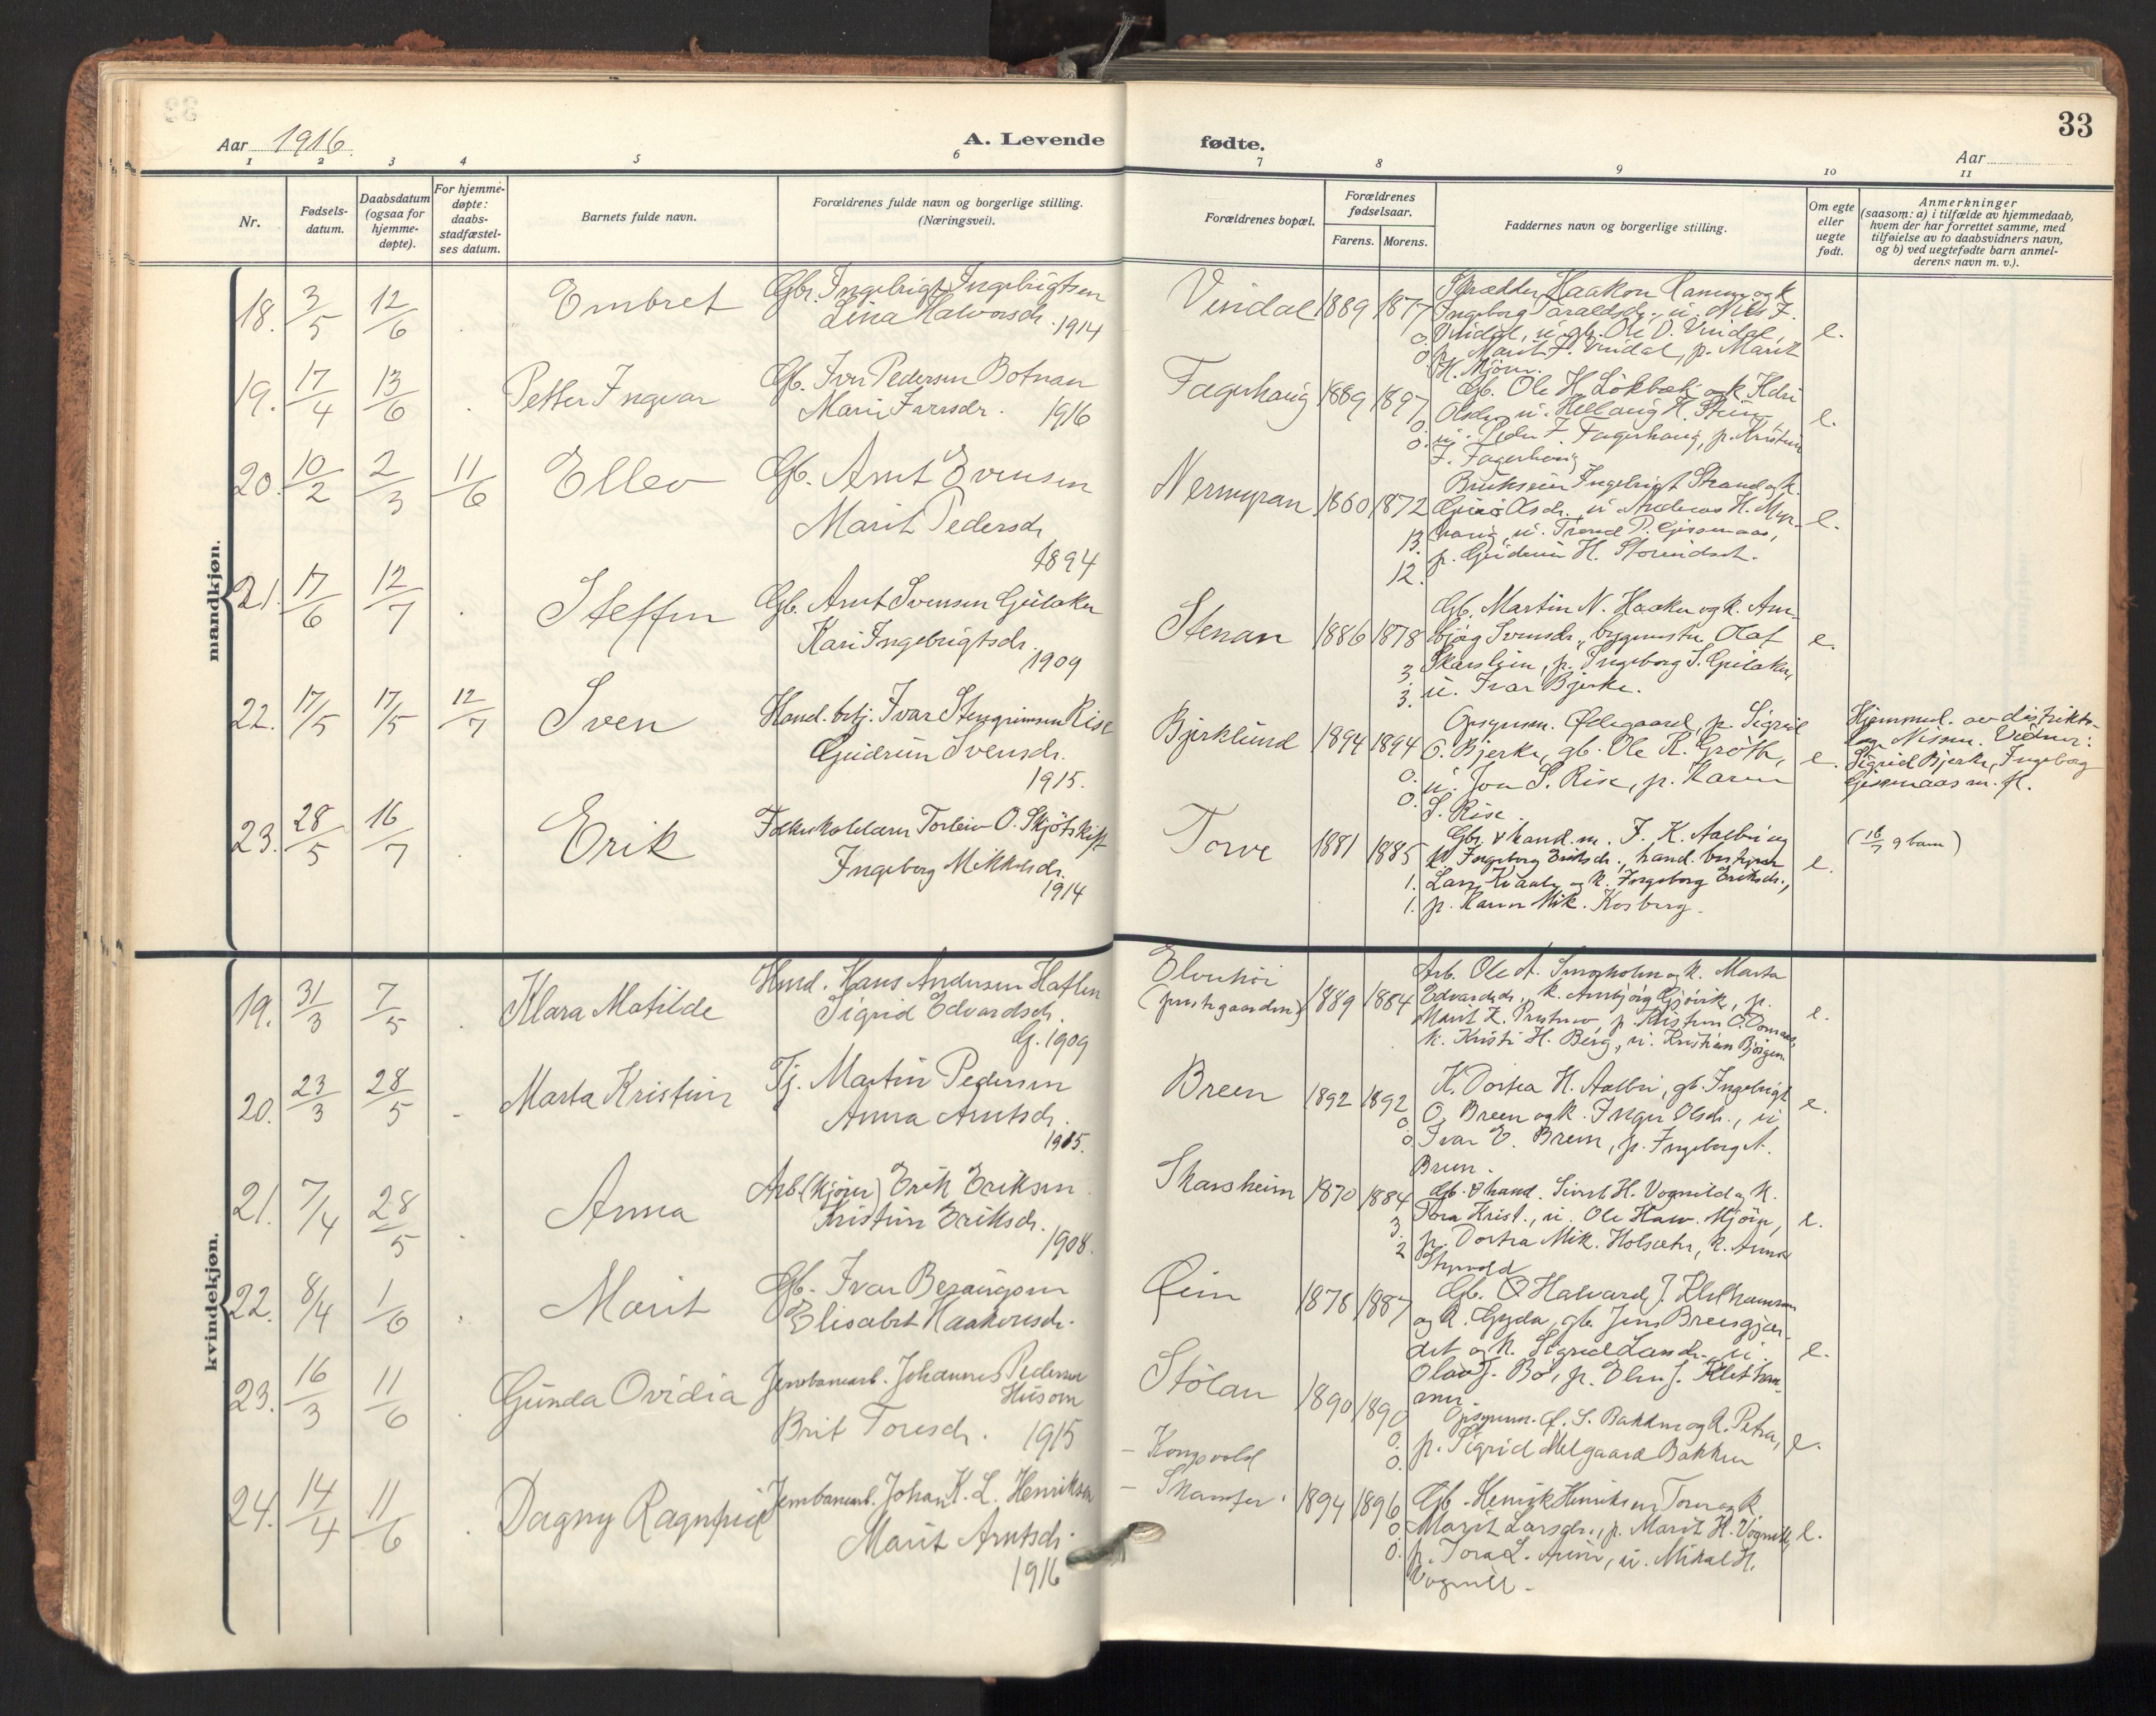 33
Aar 1916.
A. Levende
fødte.
Aar
1 2 3 4 5 6 7 8 9 10 11
Nr.
Fødsels-
datum.
Daabsdatum
(ogsaa for
hjemme-
døpte).
For hjemme-
døpte:
daabs-
stadfæstel-
ses datum.
Barnets fulde navn.
Forældrenes fulde navn og borgerlige stilling.
(Næringsvei).
Forældrenes bopæl.
Forældrenes
fødselsaar.
Farens. Morens.
Faddernes navn og borgerlige stilling.
Om egte
eller
uegte
født.
Anmerkninger
(saasom: a) i tilfælde av hjemmedaab,
hvem der har forrettet samme, med
tilføielse av to daabsvidners navn,
og b) ved uegtefødte barn anmel-
derens navn m. v.).
mandkjøn.
18. 3/5 12/6 Embret
Gbr. Ingebrigt Ingebrigtsen
Lina Halvorsdr. 1914
Vindal 1889 1877
0.
0.
Skrædder Haakon
Ingeborg Haraldsdr., u. Nils J.
Vindal, u. gb. Ole O. Vindal,
p. Marit J. Vindal, p. Marit
H. Mjøen.
e.
19. 17/4 13/6 Petter Ingvar
Gb. Iver Pedersen Botnan
Marie Iversdr. 1916
Fagerhaug 1889 1897
0.
0.
Gb. Ole H. Løkbæk og k. Kari
Olsdr., u. Hellaug H. Stuen
u. Peder J. Fagerhaug, p. Kristine
J. Fagerhaug
e.
20. 10/2 2/3 11/6 Ellev
Gb. Arnt Evensen
Marit Pedersdr.
1894
Nermyran 1860 1872
13.
12.
Brukseier Ingebrigt Strand og k.
Guri Olsdr., u. Andreas H. Myr-
haug, u. Trond P. Gisnaas,
p. Gudrun H. Storindset.
e.
21. 17/6 12/7 Steffen
Gb. Arnt Svensen Gulaker
Kari Ingebrigtsdr.
1909
Stenan 1886 1878
3.
3.
Gb. Martin N. Haaker og k. Am-
bjørg Svensdr., bygmester Olaf
Skarsheim, p. Ingeborg S. Gulaker,
u. Ivar Bjerke.
e.
22. 17/5 17/5 12/7 Sven
Hand.betj. Ivar Stengrimsen Rise
Gudrun Svensdr.
1915.
Bjerklund 1894 1894
0.
0.
Opsynsm. Ødegaard, p. Sigrid
O. Bjerke, gb. Ole K. Grøtte,
u. Jon S. Rise, p. Karen
S. Rise.
e.
Hjemmed. av distrikts-
læge Nissen. Vidner:
Sigrid Bjerke, Ingeborg
Gisnaas m. fl.
23. 28/5 16/7 Erik
Folkeskolelærer Torleiv O. Skjøtskift
Ingeborg Mikkelsdr.
1914
Torve 1881 1885
1.
1.
Gbr. & hand.m. J. K. Aalbu og
k. Ingeborg Eriksdr., hand.bestyrer
Lars Kvaaly og k. Ingeborg Eriksdr.,
p. Karen Mik. Kosberg.
e.
(16/7 9 barn)
kvindekjøn.
19. 31/3 7/5 Klara Matilde
Hmd. Hans Andersen Haflen
Sigrid Edvardsdr.
G. 1909
Elvehøi
(prestegaarden) 1889 1884
Arb. Ole A. Smegholm og k. Marta
Edvardsdr., k. Ambjørg Gjøvik, p.
Marit K. Prestmo, p. Kristine O. Domaas,
k. Kristi H. Berg, u. Kristian Bjørgen.
e.
20. 23/3 28/5 Marta Kristine
Tj. Martin Pedersen
Anna Arntsdr.
1915.
Breen 1892 1892
0
0
K. Dortea H. Aalbu, gb. Ingebrigt
O. Breen og k. Inger Olsdr., u.
Ivar E. Breen, p. Ingeborg A.
Breen.
e.
21. 7/4 28/5 Anna
Arb. (Kjører) Erik Eriksen
Kristine Eriksdr.
1908.
Skarsheim 1870 1884
3.
2
Gb. & hand. Sivert H. Vognild og k.
Tora Krist., u. Ole Halv. Mjøen,
p. Dortea Mik. Holsæter, k. Anne
Skjevold
e.
22. 8/4 1/6 Marit
Gb. Ivar Besaugsen
Elisabet Haakonsdr.
Øien 1878 1887
Gb. O Halvard J. Klethammer
og k. Gyda, gb. Jens Breesgjær-
det og k. Sigrid Larsdr., u.
Olav J. Bø, p. Elen J. Kletham-
mer.
e.
23. 16/3 11/6 Gunda Ovidia
Jernbanearb. Johannes Pedersen
Husom
Brit Toresdr. 1915
Stølan
- Kongsvold 1890 1890
0.
0.
Opsynsm. O. S. Bakken og k. Petra,
p. Sigrid Melgaard Bakken
e.
24. 14/4 11/6 Dagny Ragnfrid
Jernbanearb. Johan K. L. Henriksen
Marit Arntsdr.
1916
- Skamfer 1894 1896
0.
0.
Gb. Henrik Henriksen Torve og k.
Marit Larsdr., p. Marit H. Vognild,
p. Tora L. Aune, u. Mikal H.
Vognild.
e.